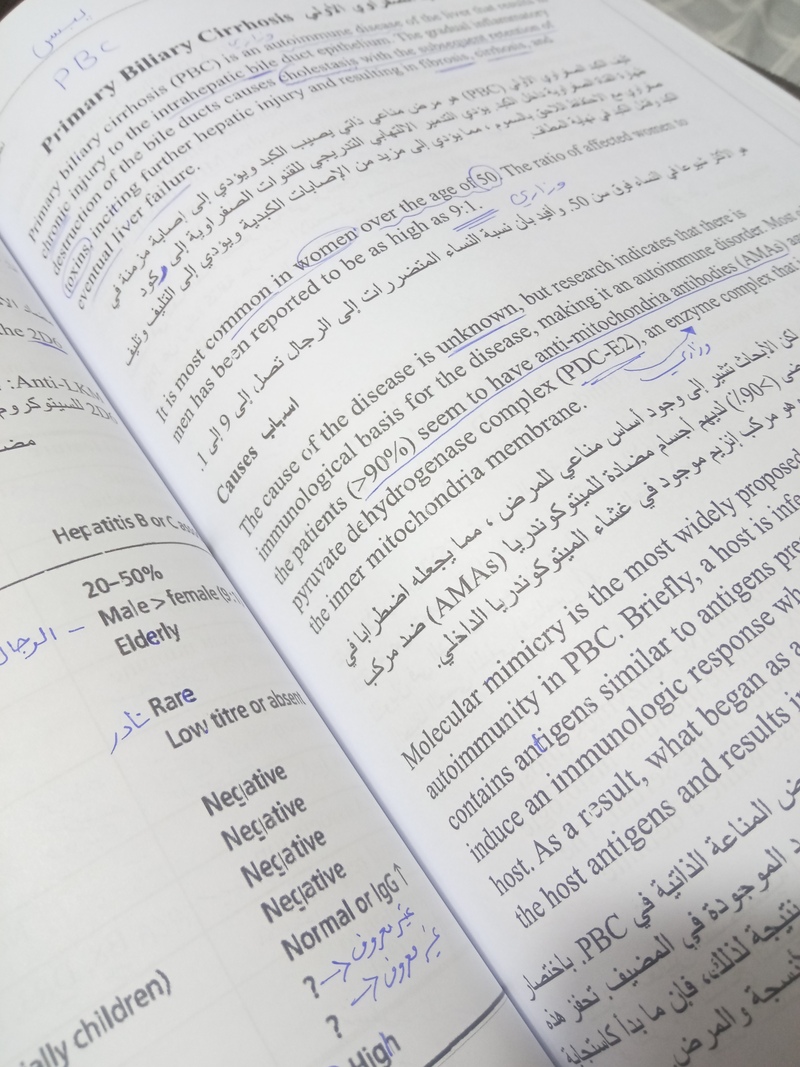 بيسس
PBC
Primary Biliary Cirrhosis
وزاري
Primary biliary cirrhosis (PBC) is an autoimmune disease of the liver that results in
chronic injury to the intrahepatic bile duct epithelium. The gradual inflammatory
destruction of the bile ducts causes cholestasis with the subsequent retention of
toxins, inciting further hepatic injury and resulting in fibrosis, cirrhosis, and
eventual liver failure.
(PBC) هو مرض مناعي ذاتي يصيب الكبد ويؤدي إلى إصابة مزمنة في
يؤدي التدمير الالتهابي التدريجي للقنوات الصفراوية إلى ركود
مما يؤدي إلى مزيد من الإصابات الكبدية ويؤدي إلى التليف وتليف
It is most common in women over the age of 50. The ratio of affected women to
men has been reported to be as high as 9:1.
وزاري
هو الأكثر شيوعا في النساء فوق سن 50. وأفيد بأن نسبة النساء المتضررات إلى الرجال تصل إلى 9 إلى 1.
Causes اسباب
The cause of the disease is unknown, but research indicates that there is
immunological basis for the disease, making it an autoimmune disorder. Most
the patients (>90%) seem to have anti-mitochondria antibodies (AMAs)
pyruvate dehydrogenase complex (PDC-E2), an enzyme complex that
the inner mitochondria membrane.
وزاري
لكن الأبحاث تشير إلى وجود أساس مناعي للمرض ، مما يجعله اضطرابا في
(>90٪) لديهم اجسام مضادة للميتوكوندريا (AMAs) ضد مركب
هو مركب إنزيم موجود في غشاء الميتوكوندريا الداخلي.
Molecular mimicry is the most widely proposed
autoimmunity in PBC. Briefly, a host is
contains antigens similar to antigens
induce an immunologic response
host. As a result, what began as a
the host antigens and results
المناعة الذاتية في PBC. باختصار
الموجودة في المضيف. تحفز هذه
نتيجة لذلك، فإن ما بدأ كاستجابة
والمرض.
the 2D6
: Anti-LKM
2D6 للسيتوكروم
Hepatitis B or
20–50%
Male > female
الرجال –
Elderly
Rare
نادر
Low titre or absent
Negative
Negative
Negative
Negative
Normal or IgG↑
? → غير معروف
? → غير معروف
children)
High